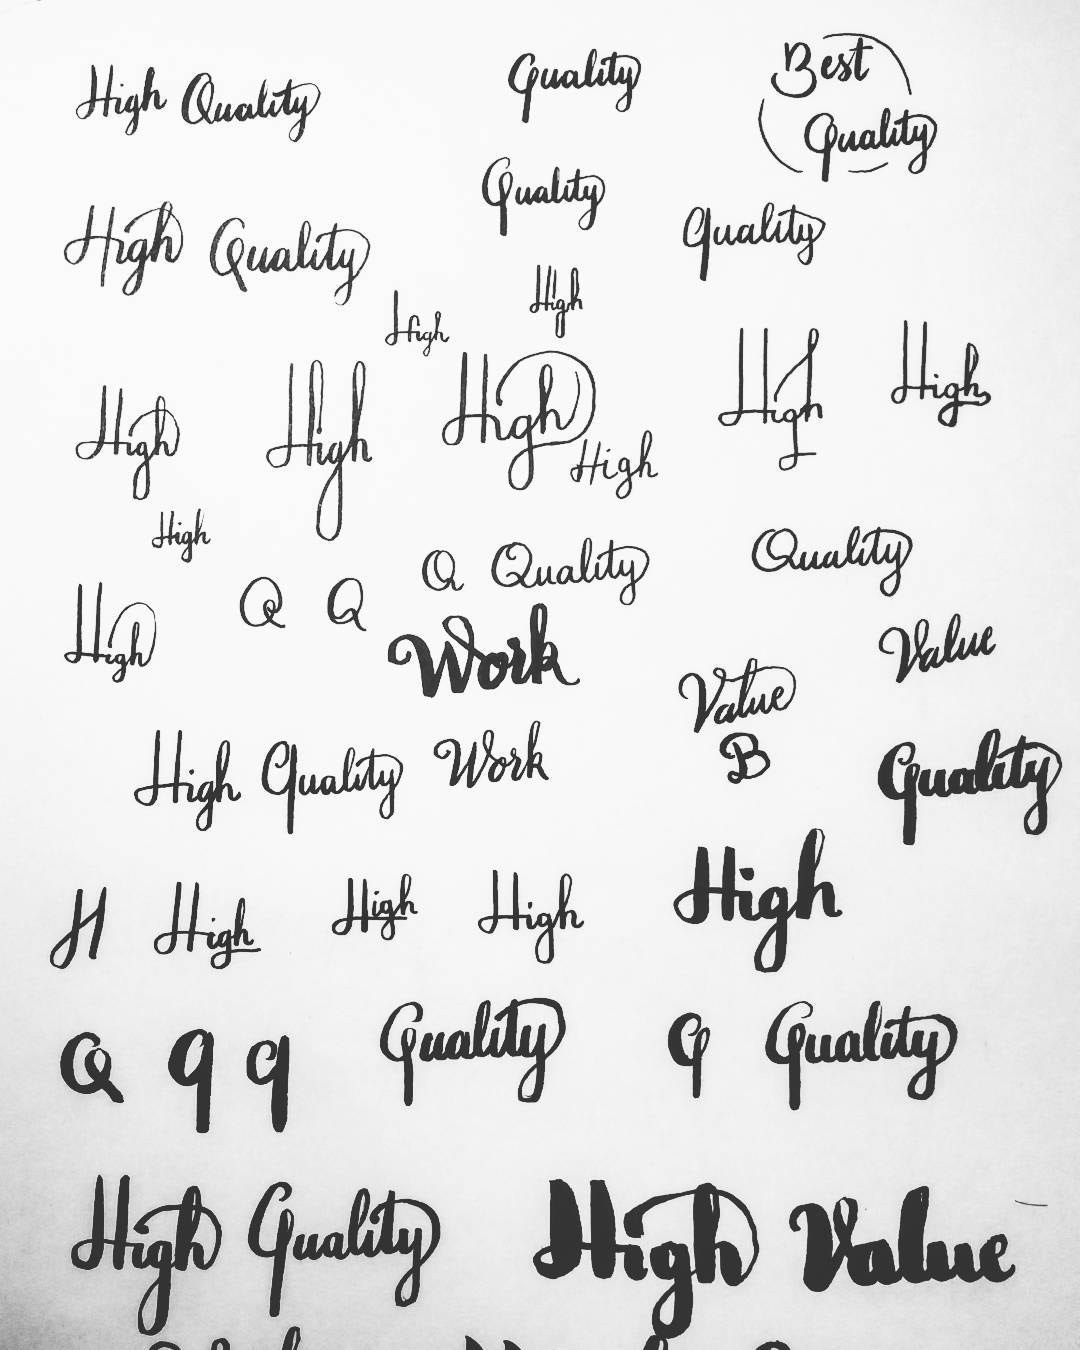 High Quality
Quality
Best
Quality
Quality
High Quality
Quality
High
High
High
High
High
High
High
High
High
Q Quality
Quality
High
Q Q
Work
Value
Value
High Quality
Work
B
Quality
H
High
High
High
High
Q q q
Quality
q
Quality
High Quality
High Value